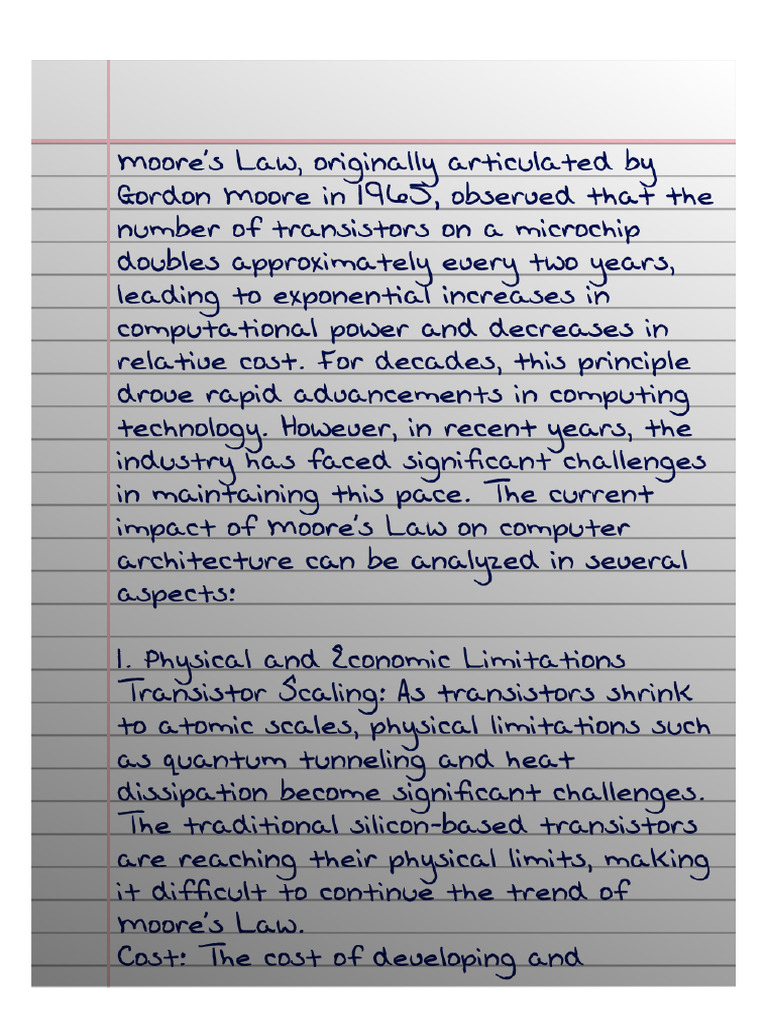 Moore's Law, originally articulated by
Gordon Moore in 1965, observed that the
number of transistors on a microchip
doubles approximately every two years,
leading to exponential increases in
computational power and decreases in
relative cost. For decades, this principle
drove rapid advancements in computing
technology. However, in recent years, the
industry has faced significant challenges
in maintaining this pace. The current
impact of Moore's Law on computer
architecture can be analyzed in several
aspects:
1. Physical and Economic Limitations
Transistor Scaling: As transistors shrink
to atomic scales, physical limitations such
as quantum tunneling and heat
dissipation become significant challenges.
The traditional silicon-based transistors
are reaching their physical limits, making
it difficult to continue the trend of
Moore's Law.
Cost: The cost of developing and